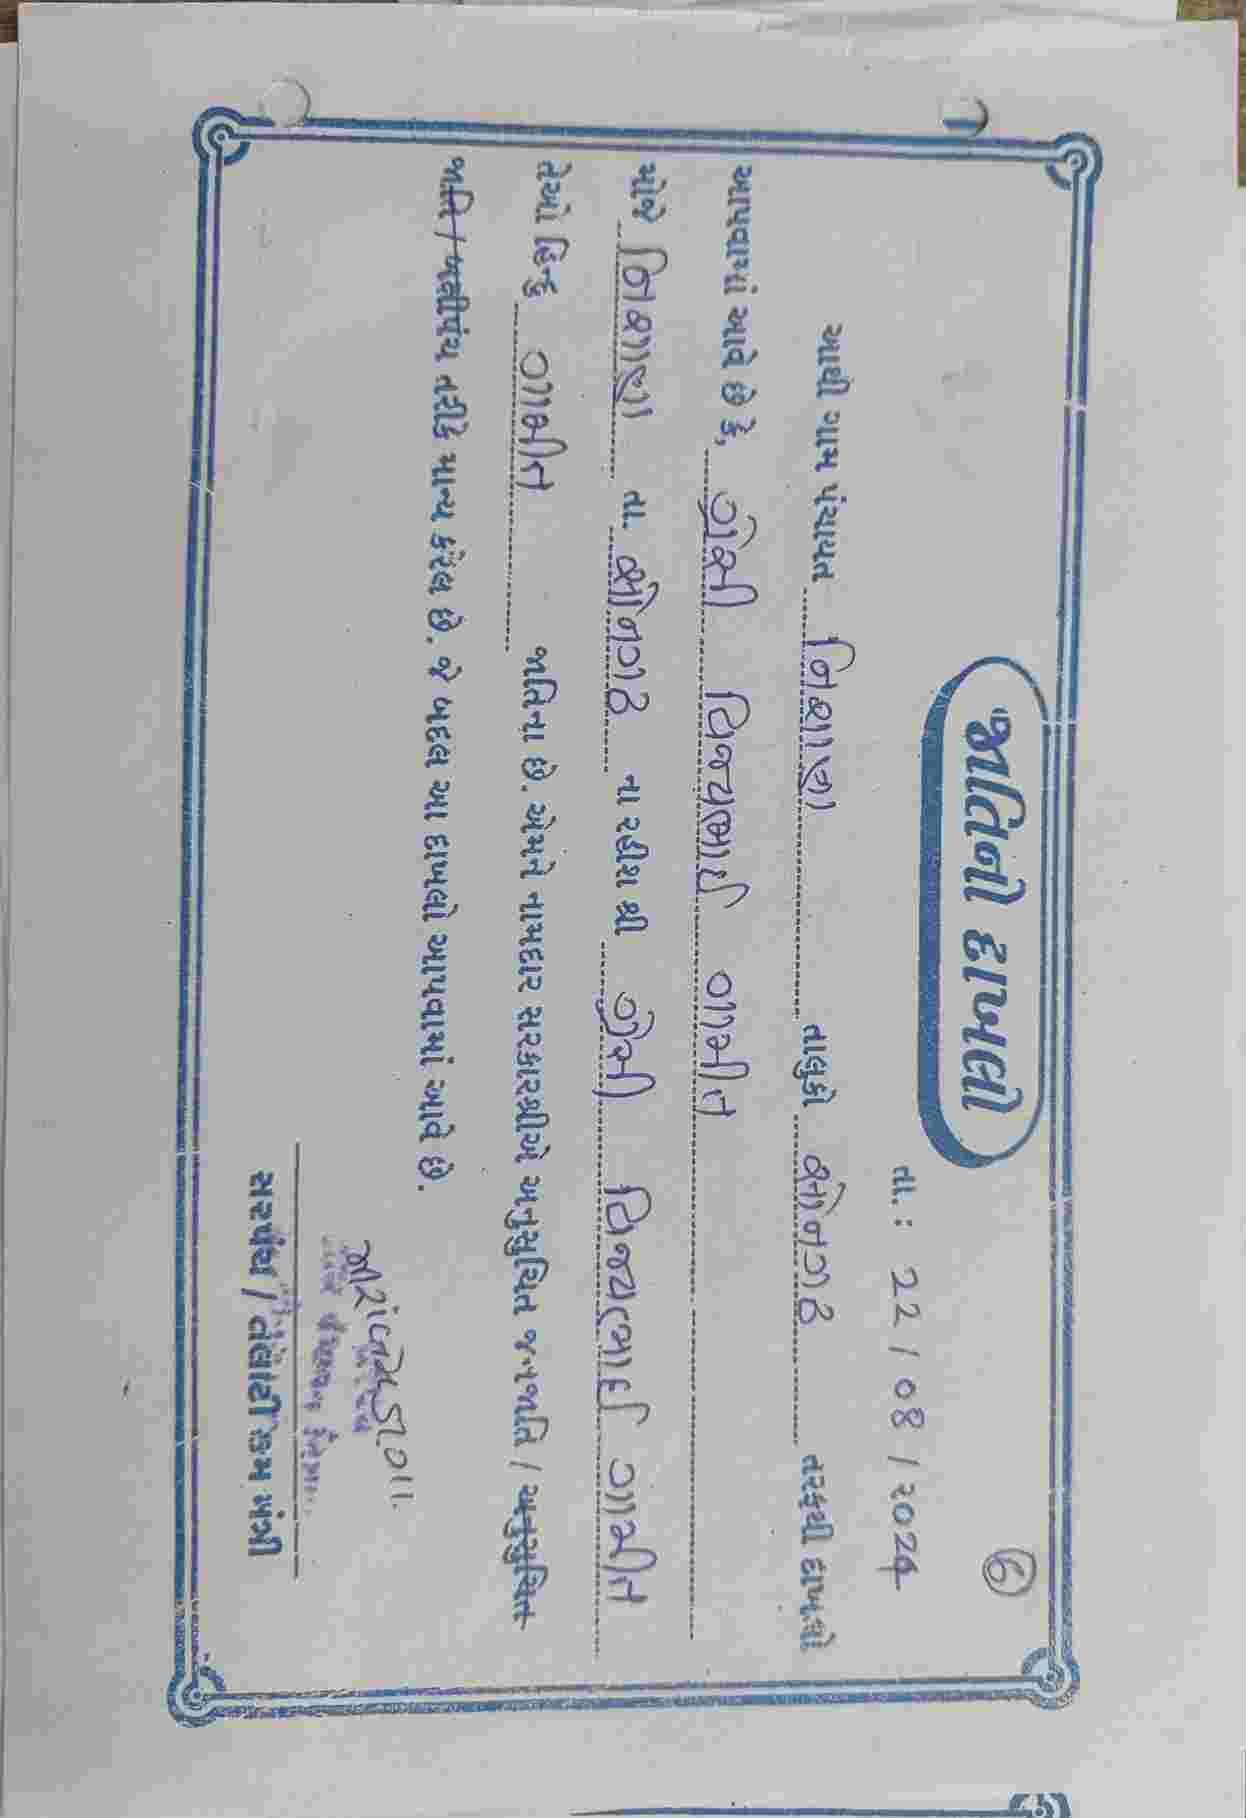 ૭
જાતિનો દાખલો
તા. : 22 / 08 / 2024
આથી ગામ પંચાયત નિશાણા તાલુકો સોનગઢ તરફથી દાખલો
આપવામાં આવે છે કે, વિજયભાઈ ગામીત
મોજે નિશાણા તા. સોનગઢ ના રહીશ શ્રી વિજયભાઈ ગામીત
તેઓ હિન્દુ ગામીત જાતિના છે. એમને નામદાર સરકારશ્રીએ અનુસુચિત જનજાતિ / અનુસુચિત
જાતિ / બક્ષીપંચ તરીકે માન્ય કરેલ છે. જે બદલ આ દાખલો આપવામાં આવે છે.
સરપંચ / તલાટી કમ મંત્રી